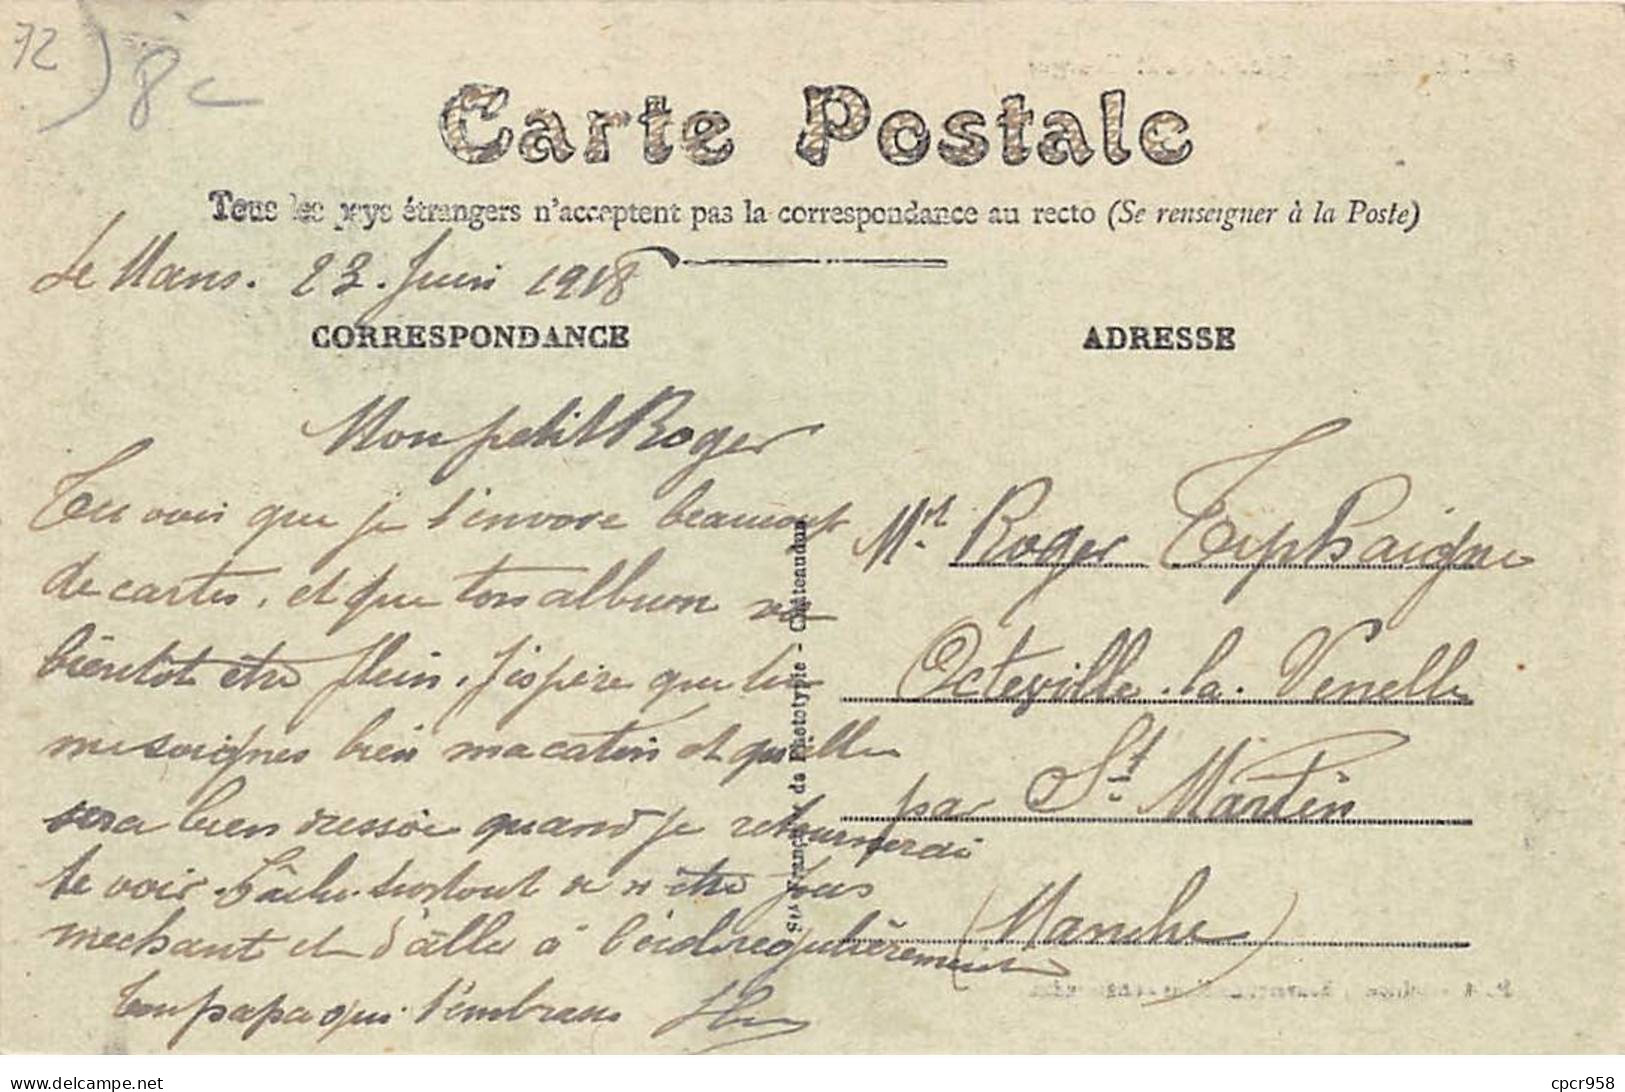 72
8c
Carte Postale
Tous les pays étrangers n'acceptent pas la correspondance au recto (Se renseigner à la Poste)
Le Mans. 23. Juin 1918
CORRESPONDANCE
Mon petit Roger
Tu vois que je t'envoie beaucoup
de cartes, et que ton album va
bientôt être plein. J'espère que tu
me soignes bien ma catin et qu'elle
sera bien dressée quand je retournerai
te voir. Tâche surtout de n'être pas
mechant et d'aller à l'école regulièrement
Ton papa qui t'embrasse
Sté Française de Phototypie - Châteaudun
ADRESSE
Mr. Roger Tiphaigne
Octeville-la-Venelle
par St Martin
(Manche)
cpcr958